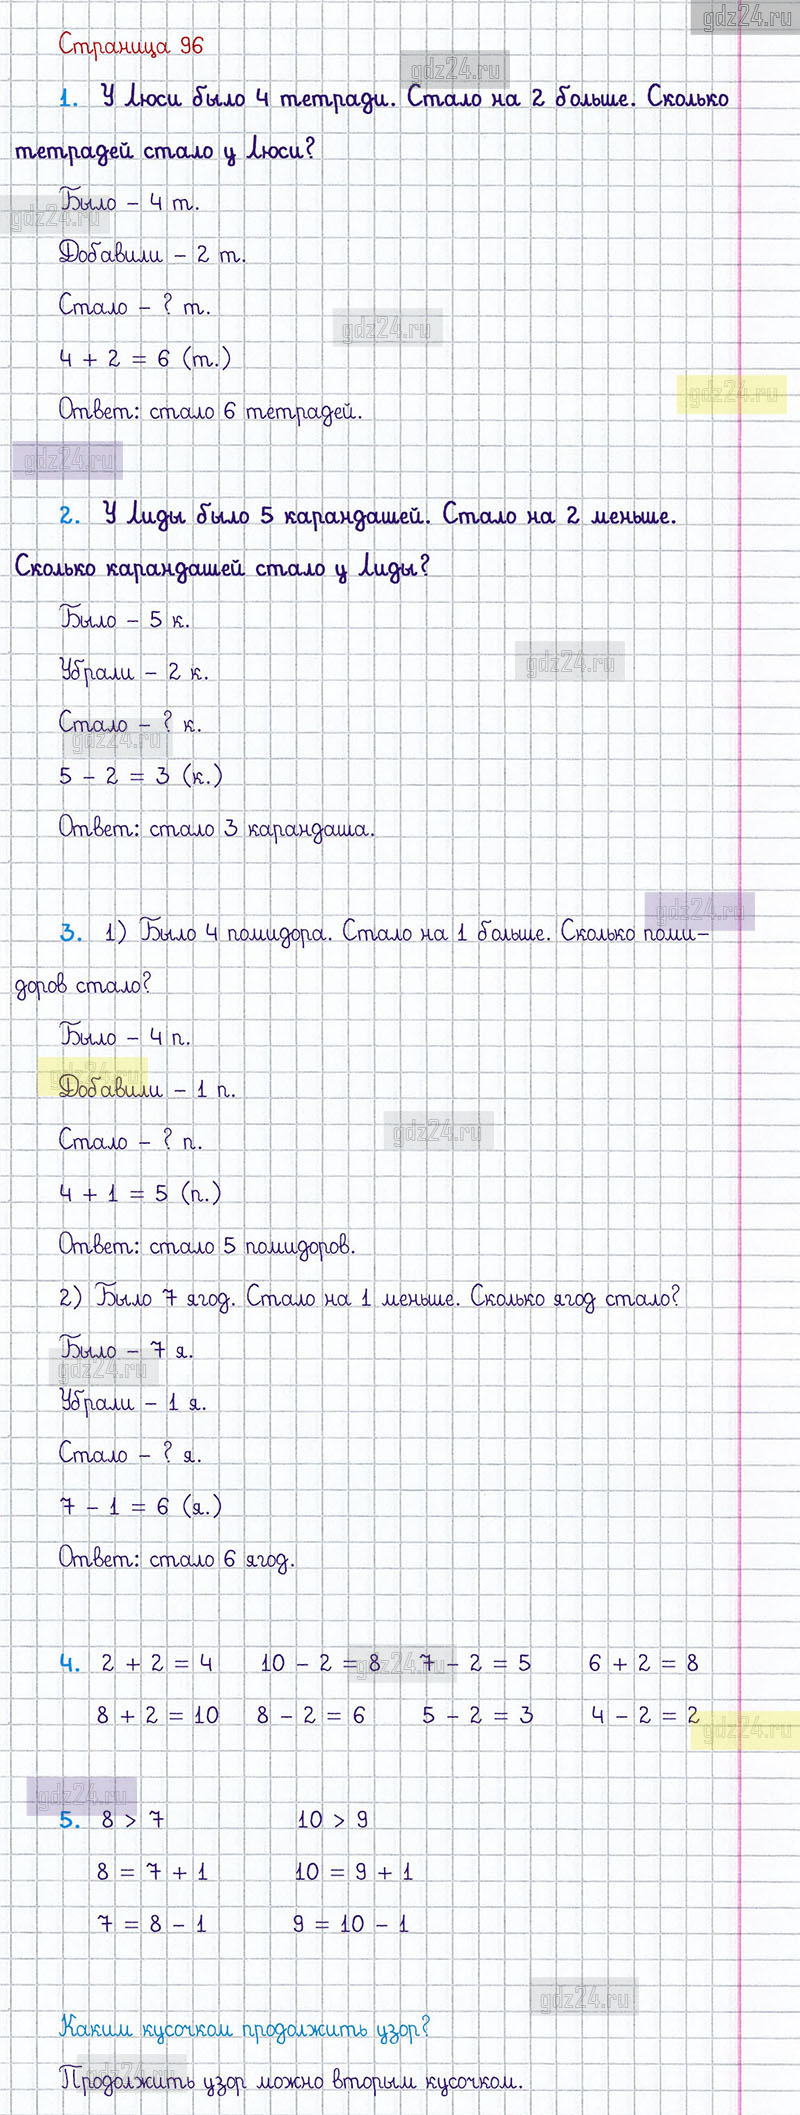 gdz24.ru
Страница 96
gdz24.ru
1. У Люси было 4 тетради. Стало на 2 больше. Сколько
тетрадей стало у Люси?
Было – 4 т.
gdz24.ru
Добавили – 2 т.
Стало – ? т.
gdz24.ru
4 + 2 = 6 (т.)
gdz24.ru
Ответ: стало 6 тетрадей.
gdz24.ru
2. У Лиды было 5 карандашей. Стало на 2 меньше.
Сколько карандашей стало у Лиды?
Было – 5 к.
gdz24.ru
Убрали – 2 к.
Стало – ? к.
gdz24.ru
5 – 2 = 3 (к.)
Ответ: стало 3 карандаша.
gdz24.ru
3. 1) Было 4 помидора. Стало на 1 больше. Сколько поми–
доров стало?
Было – 4 п.
gdz24.ru
Добавили – 1 п.
gdz24.ru
Стало – ? п.
4 + 1 = 5 (п.)
Ответ: стало 5 помидоров.
2) Было 7 ягод. Стало на 1 меньше. Сколько ягод стало?
Было – 7 я.
gdz24.ru
Убрали – 1 я.
Стало – ? я.
7 – 1 = 6 (я.)
Ответ: стало 6 ягод.
4. 2 + 2 = 4 10 – 2 = 8 7 – 2 = 5 6 + 2 = 8
gdz24.ru
8 + 2 = 10 8 – 2 = 6 5 – 2 = 3 4 – 2 = 2
gdz24.ru
gdz24.ru
5. 8 > 7 10 > 9
8 = 7 + 1 10 = 9 + 1
7 = 8 – 1 9 = 10 – 1
gdz24.ru
Каким кусочком продолжить узор?
gdz24.ru
Продолжить узор можно вторым кусочком.